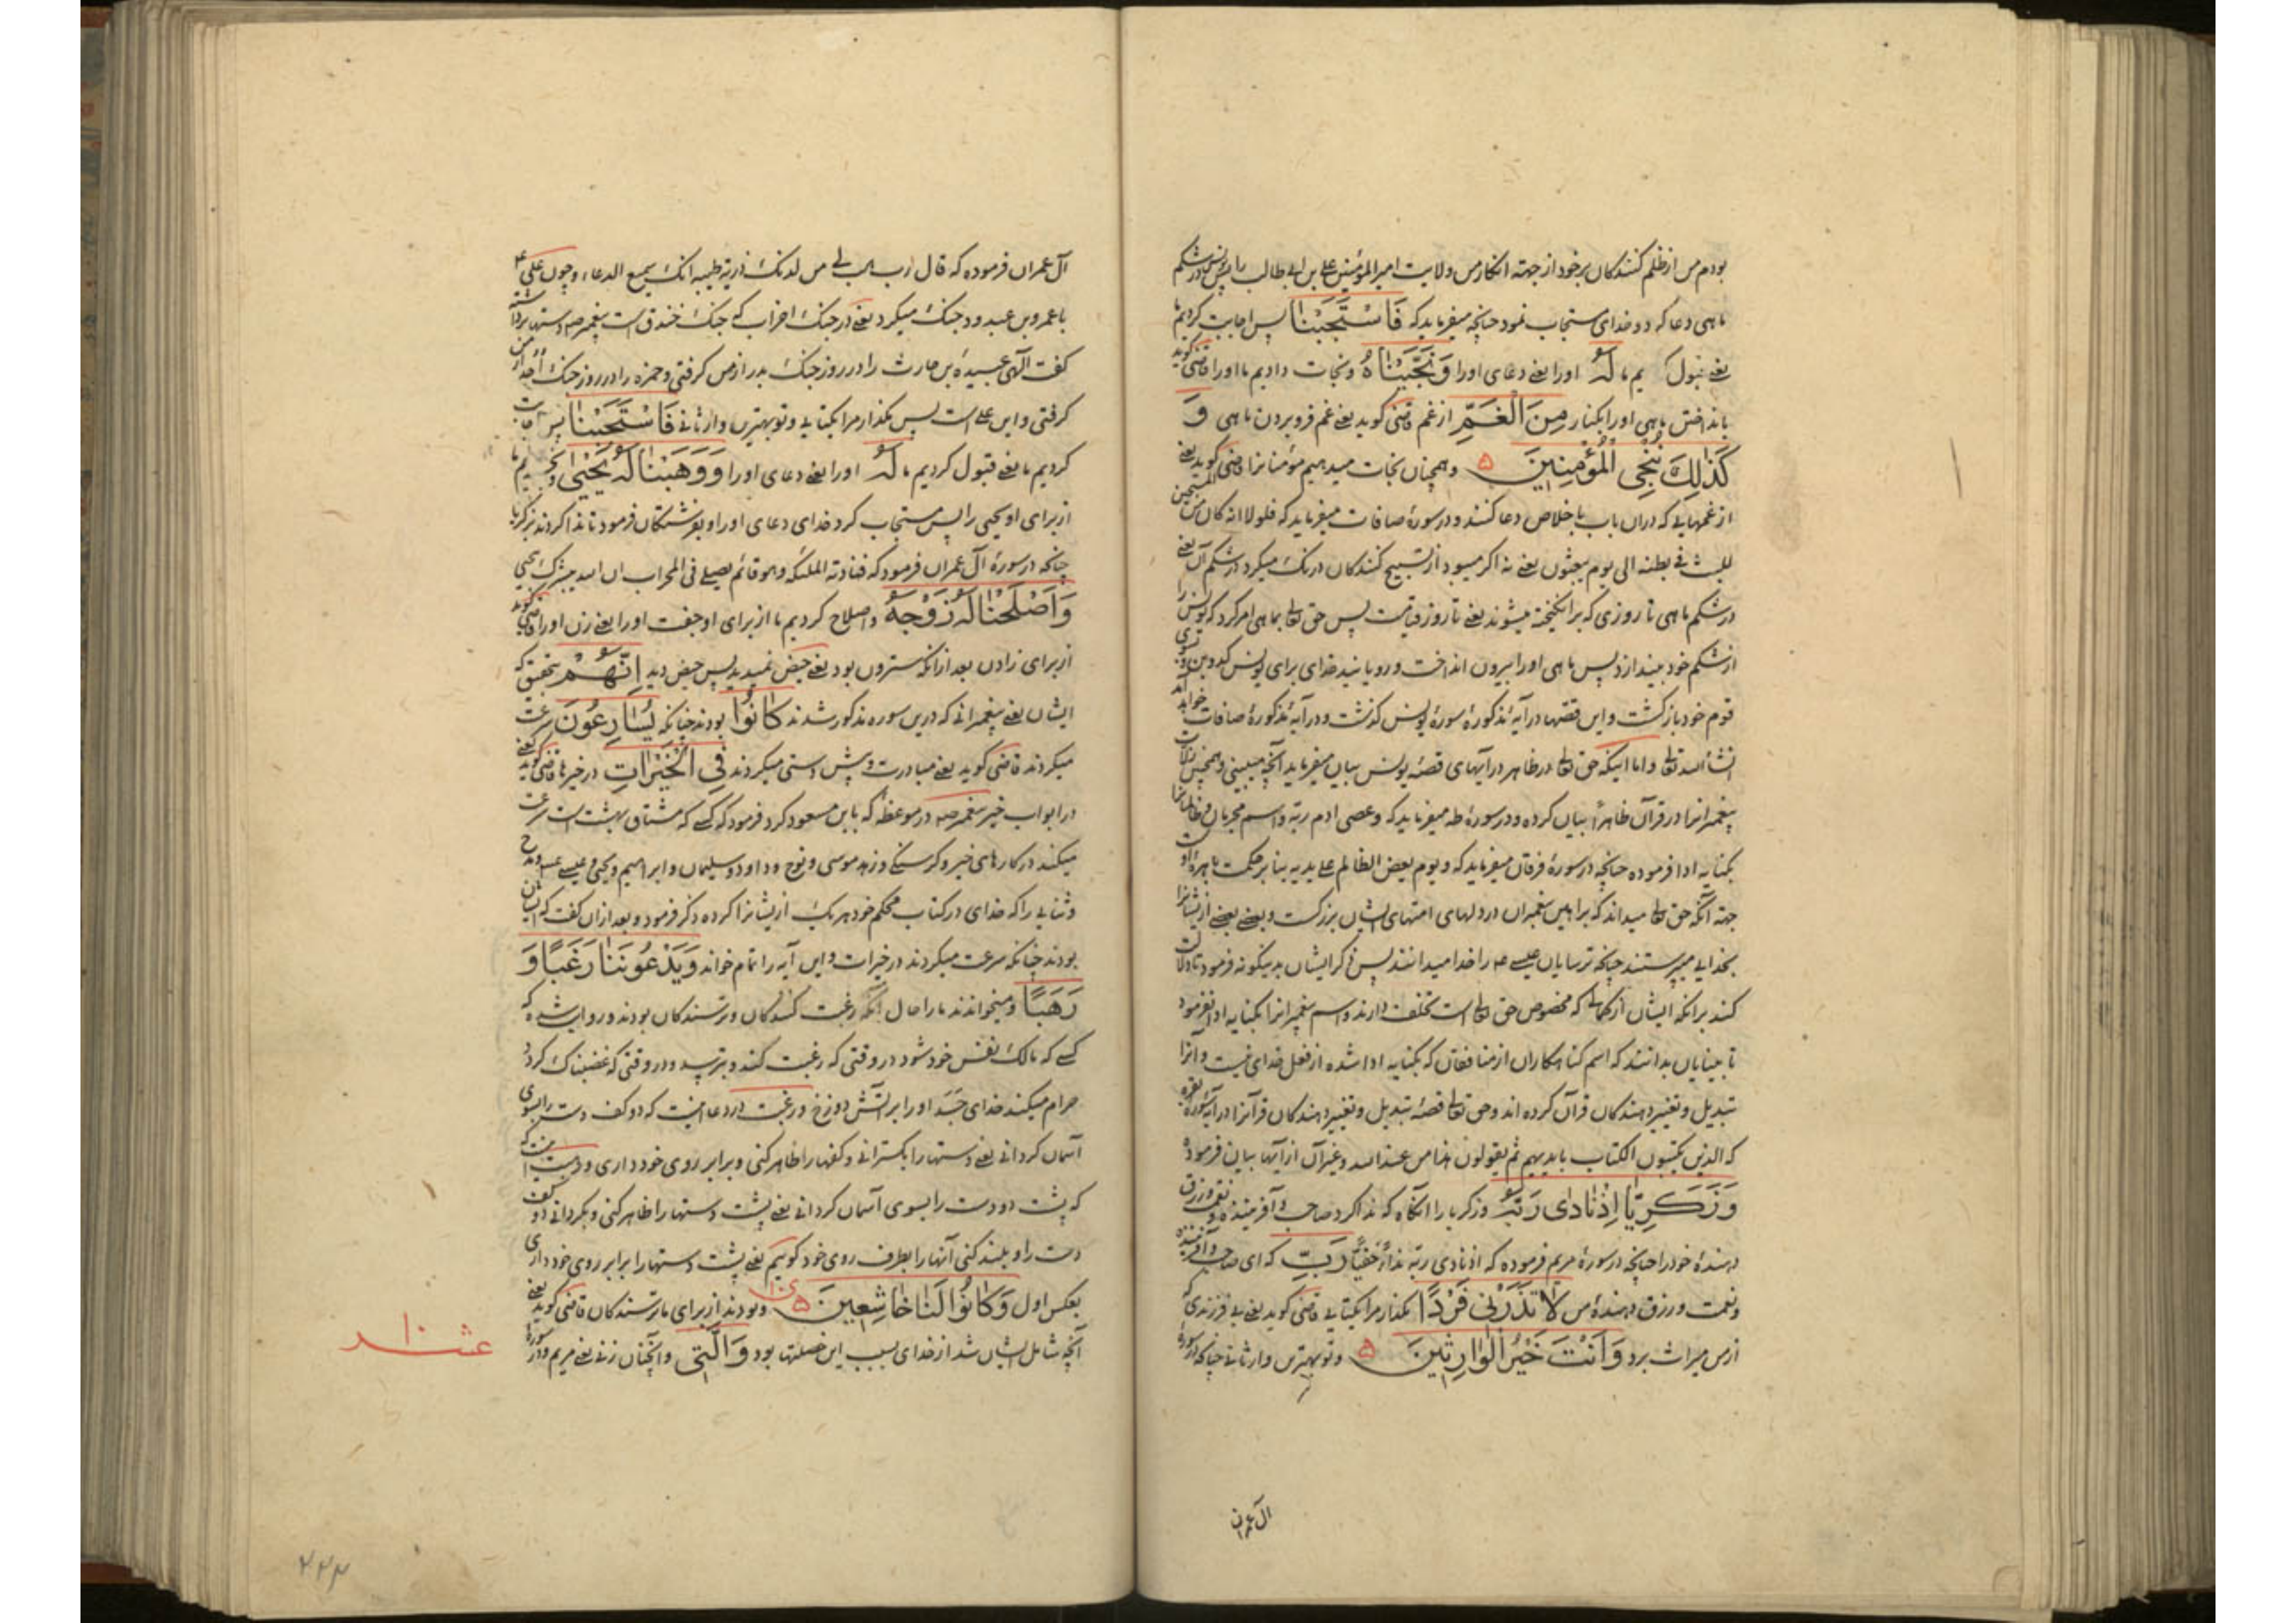 بودم من از ظلم کنندکان بر خود از جهته انکار من ولایت امیر المؤمنین علی بن ابی طالب را پس یونس در شکم
ماهی دعا کرد و خدای مستجاب نمود چنانچه میفرماید که فَاسْتَجَبْنَا پس اجابت کردیم ما
یعنی قبول کردیم ما لَهُ او را یعنی دعای او را وَنَجَّیْنَاهُ و نجات دادیم ما او را قاضی کوید
بانداختن ماهی او را بکنار مِنَ الْغَمِّ از غم قاضی کوید یعنی غم فرو بردن ماهی وَ
کَذٰلِکَ نُنْجِی الْمُؤْمِنِینَ ۵ و همچنان نجات میدهیم مؤمنانرا قاضی کوید یعنی
از غمهایی که دران باب باخلاص دعا کنند و در سورۀ صافات میفرماید که فلولا انه کان من المسبحین
للبث فی بطنه الی یوم یبعثون یعنی نه اکر میبود از تسبیح کنندکان درنک میکرد در شکم آن یعنی
در شکم ماهی تا روزی که برانکیخته میشوند یعنی تا روز قیامت پس حق تعالی بماهی امر کرد که یونس را
از شکم خود بیندازد پس ماهی او را بیرون انداخت و رویانید خدای برای یونس کدو بن و بسوی
قوم خود بازکشت و این قصّها در آیۀ مذکورۀ سورۀ یونس کذشت و در آیۀ مذکورۀ صافات خواهد آمد
انشأ الله تعالی و اما اینکه حق تعالی در ظاهر در آیهای قصّۀ یونس بیان میفرماید آنچه میبینی و همچنین زلّات
پیغمبرانرا در قرآن ظاهراً بیان کرده و در سورۀ طه میفرماید که و عصی ادم ربّه و اسم مجرمان و ظالمانرا
بکنایه ادا فرموده چنانچه در سورۀ فرقان میفرماید که و یوم یعض الظالم علی یدیه بنا بر حکمت باهرۀ اوست
جهته آنکه حق تعالی میداند که براهین پیغمبران در دلهای امتهای ایشان بزرکست و بعضی بعضی از ایشانرا
بخدایی میپرستند چنانکه ترسایان عیسی ع را خدا میدانند پس ذکر ایشان بدینکونه فرمود تا دلالت
کند بر انکه ایشان از کمالی که مخصوص حق تعالی است تخلف دارند و اسم پیغمبرانرا بکنایه ادا نفرمود
تا بینایان بدانند که اسم کناهکاران از منافقان که بکنایه ادا شده از فعل خدای نیست و انرا
تبدیل و تغییر دهندکان قرآن کرده اند و حق تعالی قصّۀ تبدیل و تغییر دهندکان قرآنرا در آیۀ سورۀ بقره
که الذین یکتبون الکتاب بایدیهم ثم یقولون هذا من عند الله و غیر آن از آیها بیان فرموده
وَزَکَرِیَّا اِذْ نَادٰی رَبَّهُ و زکریا را آنکاه که ندا کرد صاحب و آفریننده و نعمت و رزق
دهندۀ خود را چنانچه در سورۀ مریم فرموده که اذ نادی ربّه نداءً خفیّاً رَبِّ که ای صاحب و آفریننده
و نعمت و رزق دهندۀ من لَا تَذَرْنِی فَرْدًا مکذار مرا بکتایی قاضی کوید یعنی بی فرزندی که
از من میراث برد وَاَنْتَ خَیْرُ الْوَارِثِینَ ۵ و تو بهترین وارثانی چنانکه در سورۀ
ال عمران
آل عمران فرموده که قال رب هب لی من لدنک ذریة طیبه انک سمیع الدعاء و چون علی ع
با عمرو بن عبدود جنک میکرد یعنی در جنک احزاب که جنک خندق است پیغمبر ص دستها برداشت
کفت الٓهی عبیدة بن حارث را در روز جنک بدر از من کرفتی و حمزه را در روز جنک اُحد از من
کرفتی و این علی است پس مکذار مرا بکتایی و تو بهترین وارثانی فَاسْتَجَبْنَا پس اجابت
کردیم ما یعنی قبول کردیم ما لَهُ او را یعنی دعای او را وَوَهَبْنَا لَهُ یَحْیٰی و بخشیدیم ما
از برای او یحیی را پس مستجاب کرد خدای دعای او را و بفرشتکان فرمود تا ندا کردند زکریا را
چنانچه در سورۀ آل عمران فرمود که فنادته الملئکه و هو قائم یصلی فی المحراب ان الله یبشرک بیحیی
وَاَصْلَحْنَا لَهُ زَوْجَهُ و اصلاح کردیم ما از برای او جفت او را یعنی زن او را قاضی کوید
از برای زادن بعد از انکه سترون بود یعنی حیض نمیدید پس حیض دید اِنَّهُمْ بتحقیق که
ایشان یعنی پیغمبرانی که درین سوره مذکور شدند کَانُوا بودند چنانکه یُسَارِعُونَ سرعت
میکردند قاضی کوید یعنی مبادرت و پیش دستی میکردند فِی الْخَیْرَاتِ در خیرها قاضی کوید یعنی
در ابواب خیر پیغمبر ص در موعظه که بابن مسعود کرد فرمود که کسی که مشتاق بهشت است سرعت
میکند در کارهای خیر و کرسنکی و زهد موسی و نوح و داود و سلیمان و ابراهیم و یحیی و عیسی ع و مدح
و ثنایی را که خدای در کتاب محکم خود هر یک از یشانرا کرده ذکر فرمود و بعد ازان کفت که ایشان
بودند چنانکه سرعت میکردند در خیرات و این آیه را تمام خواند وَیَدْعُونَنَا رَغَبًا وَ
رَهَبًا و میخواندند ما را حال آنکه رغبت کنندکان و ترسندکان بودند و روایت شده که
کسی که مالک نفس خود شود در وقتی که رغبت کند و بترسد و در وقتی که غضبناک کردد
حرام میکند خدای جَسَد او را بر آتش دوزخ و رغبت در دعا اینست که دو کف دست را بسوی
آسمان کردانی یعنی دستها را بکسترانی و کفها را ظاهر کنی و برابر روی خود داری و رهبت اینست که
که پشت دو دست را بسوی آسمان کردانی یعنی پشت دستها را ظاهر کنی و بکردانی دو کف
دست را و بلند کنی آنها را بطرف روی خود کوییم یعنی پشت دستها را برابر روی خود داری
بعکس اول وَکَانُوا لَنَا خَاشِعِینَ ۵ و بودند از برای ما ترسندکان قاضی کوید یعنی
آنچه شامل ایشان شد از خدای بسبب این خصلتها بود وَالَّتِی و انچنان زنی یعنی مریم و در سورۀ
عشر
۲۴۳